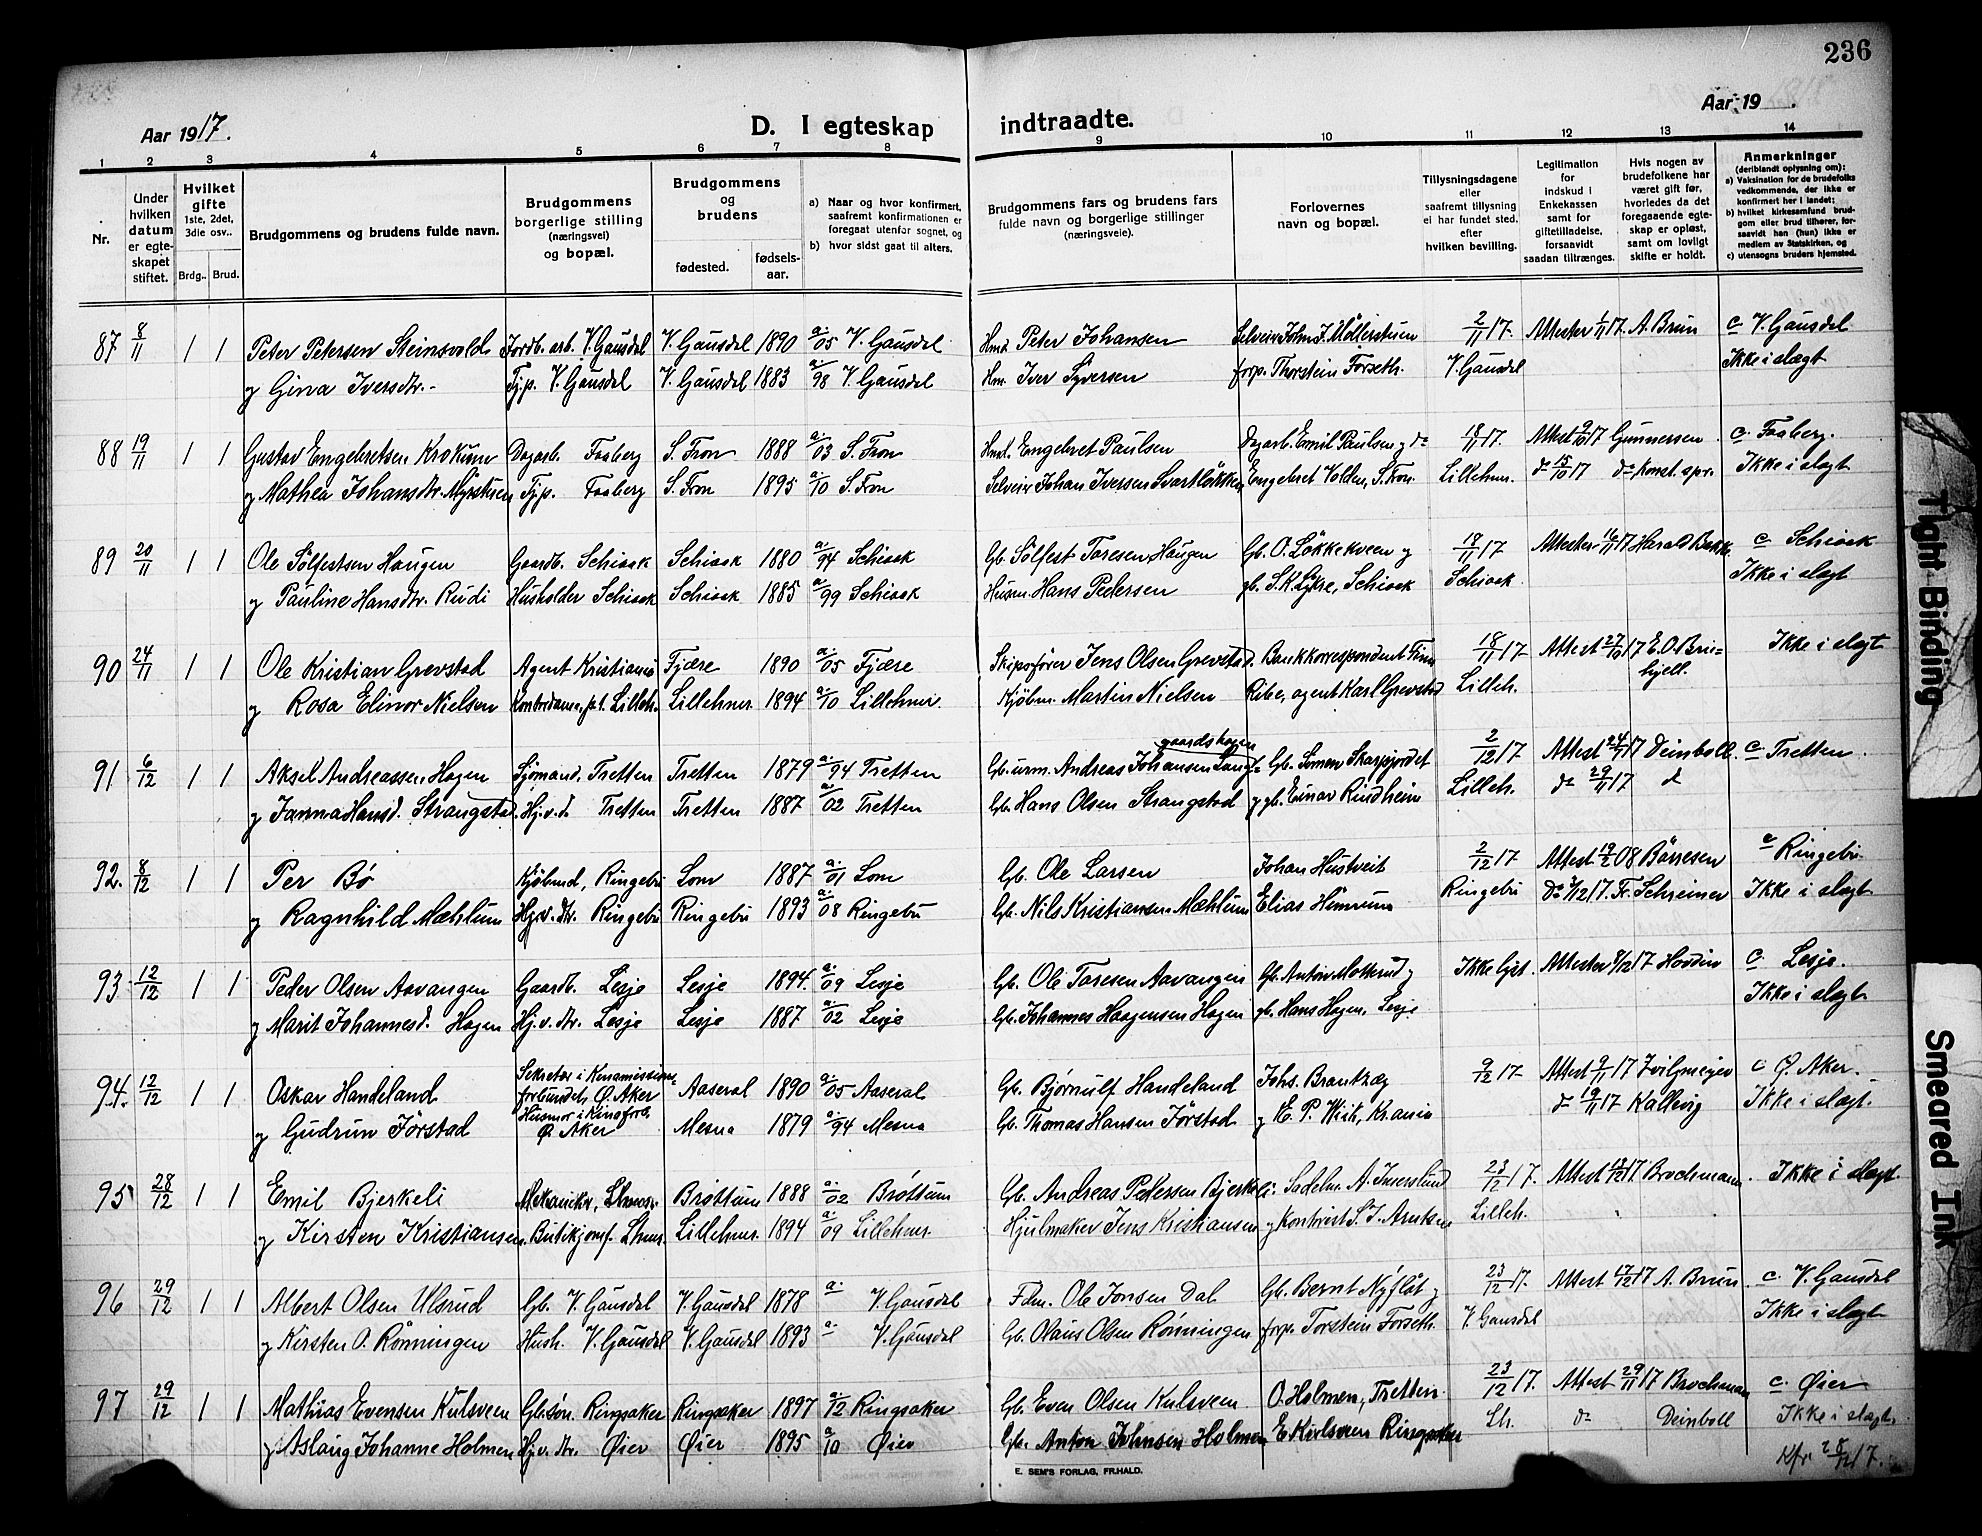 236
Aar 1917.
D. I egteskap indtraadte.
Aar 19
1 2 3 4 5 6 7 8 9 10 11 12 13 14
Nr.
Under hvilken datum er egteskapet stiftet.
Hvilket gifte 1ste, 2del, 3die osv..
Brdg.. Brud.
Brudgommens og brudens fulde navn.
Brudgommens borgerlige stilling (næringsvei) og bopæl.
Brudgommens og brudens
fødested. fødsels-aar.
a) Naar og hvor konfirmert, saafremt konfirmationen er foregaat utenfor sognet, og
b) hvor sidst gaat til alters.
Brudgommens fars og brudens fars fulde navn og borgerlige stillinger (næringsveie).
Forlovernes navn og bopæl.
Tillysningsdagene eller saafremt tillysning ei har fundet sted. efter hvilken bevilling.
Legitimation for indskud i Enkekassen samt for giftetilladelse, forsaavidt saadan tiltrænges.
Hvis nogen av brudefolkene har været gift før, hvorledes da det foregaaende egteskap er opløst, samt om lovligt skifte er holdt.
Anmerkninger (deriblandt oplysning om): a) Vaksination for de brudefolks vedkommende, der ikke er konfirmert her i landet; b) hvilket kirkesamfund brudgom eller brud tilhører, forsaavidt han (hun) ikke er medlem av Statskirken, og c) utensogns bruders hjemsted.
87 8/11 1 1 Peter Petersen Steinsvold Jordb. arb. V. Gausdal V. Gausdal 1890 a/05 V. Gausdal Hmd. Peter Johansen 2/11 17. Attester 1/11 17. A. Brun c V. Gausdal
y Gina Iversdtr. Tjp. V. Gausdal V. Gausdal 1883 a/98 V. Gausdal Hm. Iver Syversen forp. Thorstein Forseth. V. Gausdal Ikke i slegt
88 19/11 1 1 Gustav Engebretsen Krokum Dagarb. Faaberg S. Fron 1888 a/03 S. Fron Hmd. Engebret Paulsen Dagarb. Emil Paulsen y do 18/11 17. Gunnersen c. Faaberg.
y Mathea Johansdtr. Myrstuen Tjp. Faaberg S. Fron 1895 a/10 S. Fron Selveier Johan Iversen Svartløkken Engebret Volden, S. Fron. Lillehm. do 15/10 17 do Konst. spr. Ikke i slegt
89 20/11 1 1 Ole Sølfestsen Haugen Gaardb. Schiaak Schiaak 1880 a/94 Schiaak Gb. Sølfest Taresen Haugen Gb. O. Løkkekveen y 18/11 17 Attester 16/11 17 Harald Bakke c Schiaak
y Pauline Hansdtr. Rudi Husholder Schiaak Schiaak 1885 a/99 Schiaak Husm. Hans Pedersen gb. S. K. Lykre, Schiaak Schiaak Ikke i slegt
90 24/11 1 1 Ole Kristian Grevstad Agent Kristiania Fjære 1890 a/05 Fjære Skipsfører Jens Olsen Grevstad. Bankkorrespondent Finn 18/11 17 Attest 27/10 17 E. O. Brin= Ikke i slegt
y Rosa Elinor Nielsen Kontordame, p.t. Lilleh. Lillehmr 1894 a/10 Lillehmr. Kjøbm. Martin Nielsen Ribe, agent Karl Grevstad Lilleh. hjell.
91 6/12 1 1 Aksel Andreassen Hagen Sjømand. Tretten Tretten 1879 a/94 Tretten Gb. urm. Andreas Johansen Lang= gaardshagen Gb. Simen Skarpjordet 2/12 17 Attest 24/11 17 Deinboll. c. Tretten
y Janna Hansd. Strangstad. Hj.v.d. Tretten Tretten 1887 a/02 Tretten Gb. Hans Olsen Strangstad y gb. Einar Rindheim Lilleh. do 29/11 17 d
92. 8/12 1 1 Per Bø Kjøbmd, Ringebu Lom 1887 a/01 Lom Gb. Ole Larsen Johan Hustveit 2/12 17. Attest 19/2 08 Børresen c Ringebu
y Ragnhild Mæhlum Hj.v. dtr. Ringebu Ringebu 1893 a/08 Ringebu Gb. Nils Kristiansen Mæhlum Elias Ringebu Fr. Schreiner Ikke i slegt
93. 12/12 1 1 Peder Olsen Aavangen Gaardb. Lesje Lesje 1894. a/09 Lesje Gb. Ole Taresen Aavangen Gb. Anton Motterud y Ikke lyst. Attester 8/12 17 Hovdin c. Lesje.
y Marit Johannesd. Hagen Hj.v. dtr. Lesje Lesje 1887 a/02 Lesje Gb. Johannes Haagensen Hagen gb. Hans Hagen, Lesje Ikke i slegt
94. 12/12 1 1 Oskar Handeland Sekretær i Kinamissions= forbundets, Ø. Aker Aaseral 1890 a/05 Aaseral Gb. Bjørnulf Handeland Johs. Brantzæg 9/12 17. Attest 9/11 17 Zvilgmeyer c Ø. Aker.
y Gudrun Jørstad Husmor i Kinaforb, Ø. Aker Mesna 1879 a/94 Mesna Gb. Thomas Hansen Jørstad y E. P. Wiik, Krania do 19/11 17 Kallevig Ikke i slegt.
95 28/12 1 1 Emil Bjerkeli Mekaniker, Lhmr. Brøttum 1888 a/02 Brøttum Gb. Andreas Pedersen Bjerkeli. Sadelm. A. Imerslund 23/12 17. Attest 18/12 17 Brochmann. Ikke i slegt.
y Kirsten Kristiansen. Butikjomf. Lhmr. Lillehmr. 1894 a/09 Lillehmr. Hjulmaker Jens Kristiansen y Kontorist S. J. Arntsen Lilleh.
96 29/12 1 1 Albert Olsen Ulsrud Gb. V. Gausdal V. Gausdal 1878 a. V. Gausdal Fdm. Ole Jonsen Dal Gb. Bernt Nyfløt y 23/12 17. Attest 17/12 17 A. Brun c. V. Gausdal
y Kirsten O. Rønningen Hush. V. Gausdal V. Gausdal 1893 a. V. Gausdal Gb. Olaus Olsen Rønningen forp. Torstein Forseth. V. Gausdal Ikke i slegt
97 29/12 1 1 Mathias Evensen Kulsveen Gb.søn. Ringsaker Ringsaker 1897 a/12 Ringsaker Gb. Even Olsen Kulsveen O. Holmen, Tretten. 23/12 17. Attest 29/11 17 Brochmann c. Øier
y Aslaug Johanne Holmen Hj.v. dtr. Øier Øier 1895 a/10 Øier Gb. Anton Johnsen Holmen E. Kulsveen Ringsaker Lh. do Deinboll Ikke i slegt.
E. SEM'S FORLAG, FR.HALD.
Tight Binding
Smeared Ink